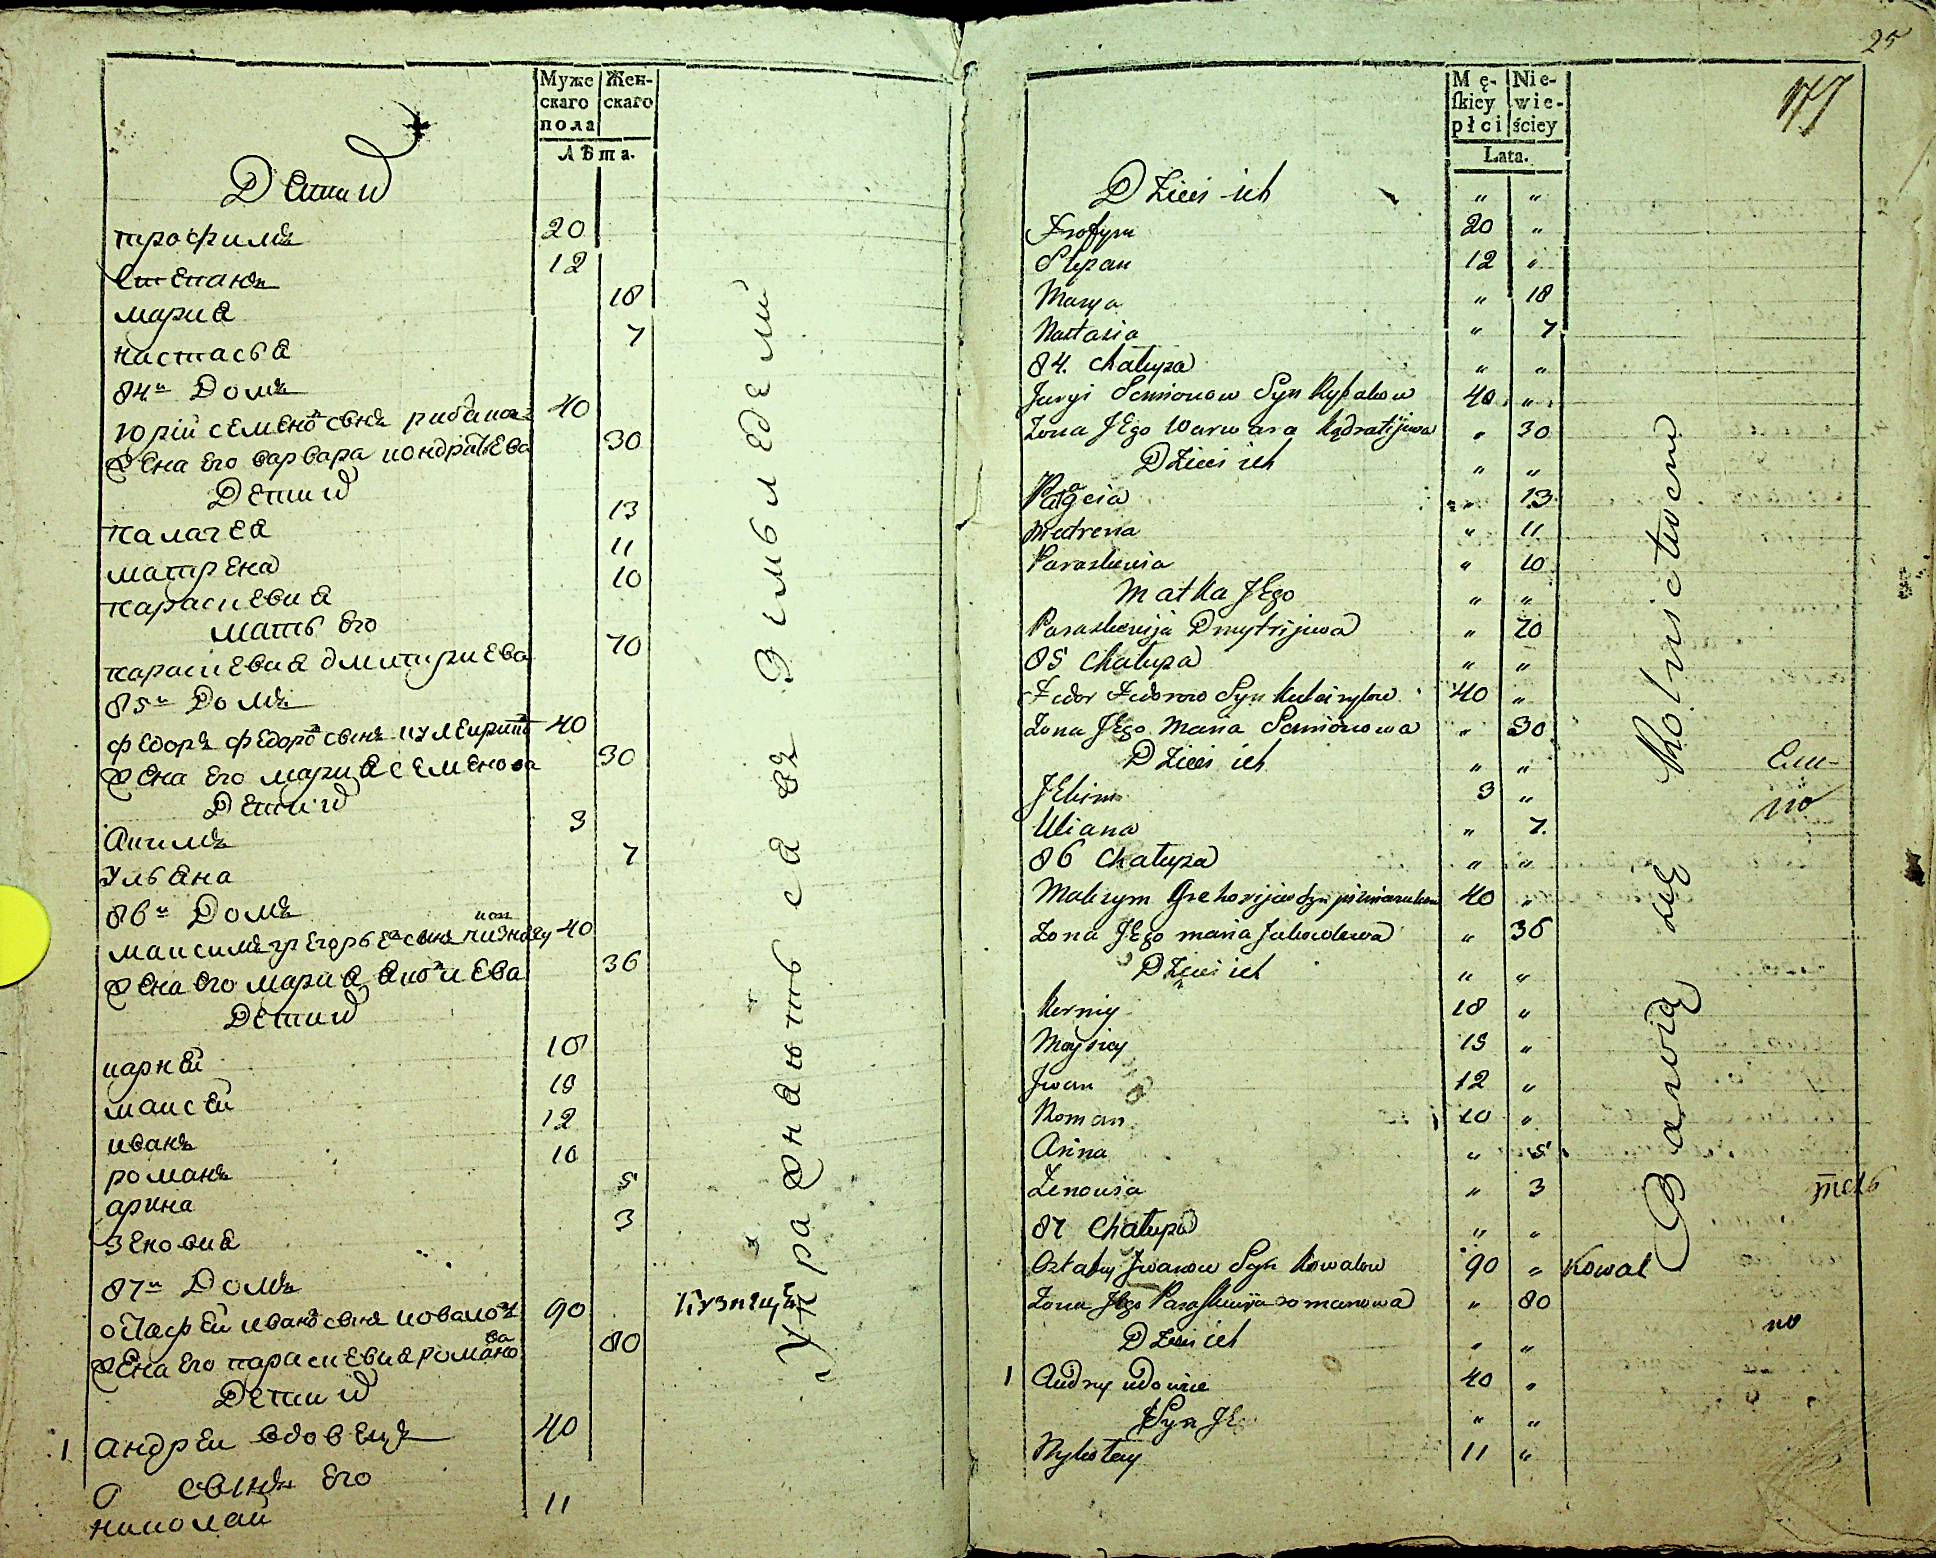 Муже
скаго
пола
Жен-
скаго
Лѣта.
Дѣти их
трофимъ 20
Степанъ 12
мариа 18
настасьа 7
84й Домъ
юрій семеновъ сынъ рибаковъ 40
Жена его варвара кондратьева 30
Дети их
палагеа 13
матрена 11
параскевиа 10
мать его
параскевиа дмитриева 70
85й Домъ
федоръ федоровъ сынъ 40
Жена его мариа семенова 30
Дети их
Акимъ 3
Ульана 7
86й Домъ
максимъ грегорьевъ сынъ 40
Жена его мариа 36
Дети их
карнѣй 18
маисей 15
иванъ 12
романъ 10
арина 5
зеновиа 3
87й Домъ
остафей ивановъ сынъ коваловъ 90
Жена его параскевиа романова 80
Дети их
1 андрей вдовецъ 40
сынъ его
николай 11
Упражнаютьса въ Земледелии
Кузнецъ
25
Mę-
skiey
płci
Nie-
wie-
ściey
Lata.
Dzieci ich " "
Trofym 20 "
Stepan 12 "
Marya " 18
Nastasia " 7
84. Chałupa " "
Juryi Semionow Syn Rybakow 40 "
Zona Jego Warwara Kądratijwa " 30
Dzieci ich " "
Pałageia " 13
Matrena " 11
Paraskewia " 10
Matka Jego " "
Paraskewija Dmytrijwa " 70
85 Chałupa " "
Fedor Fedorow Syn 40 "
Zona Jego Maria Semionowa " 30
Dzieci ich " "
Jekim 3 "
Uliana " 7.
86 Chałupa " "
Maksym Grehorijow Syn 40 "
Zona Jego maria Jakowlewa " 36
Dzieci ich " "
Kerniy 18 "
Moysiey 15 "
Jwan 12 "
Roman 10 "
Arina " 5
Zenowia " 3
87 Chałupa " "
Ostafiy Jwanow Syn Kowalow 90 " Kowal
Zona Jego Paraskewija romanowa " 80
Dzieci ich " "
1 Andrey udowiec 40 "
Syn Jego " "
Mykołay 11 "
Bawią się Rolnictwem
по
тель
по